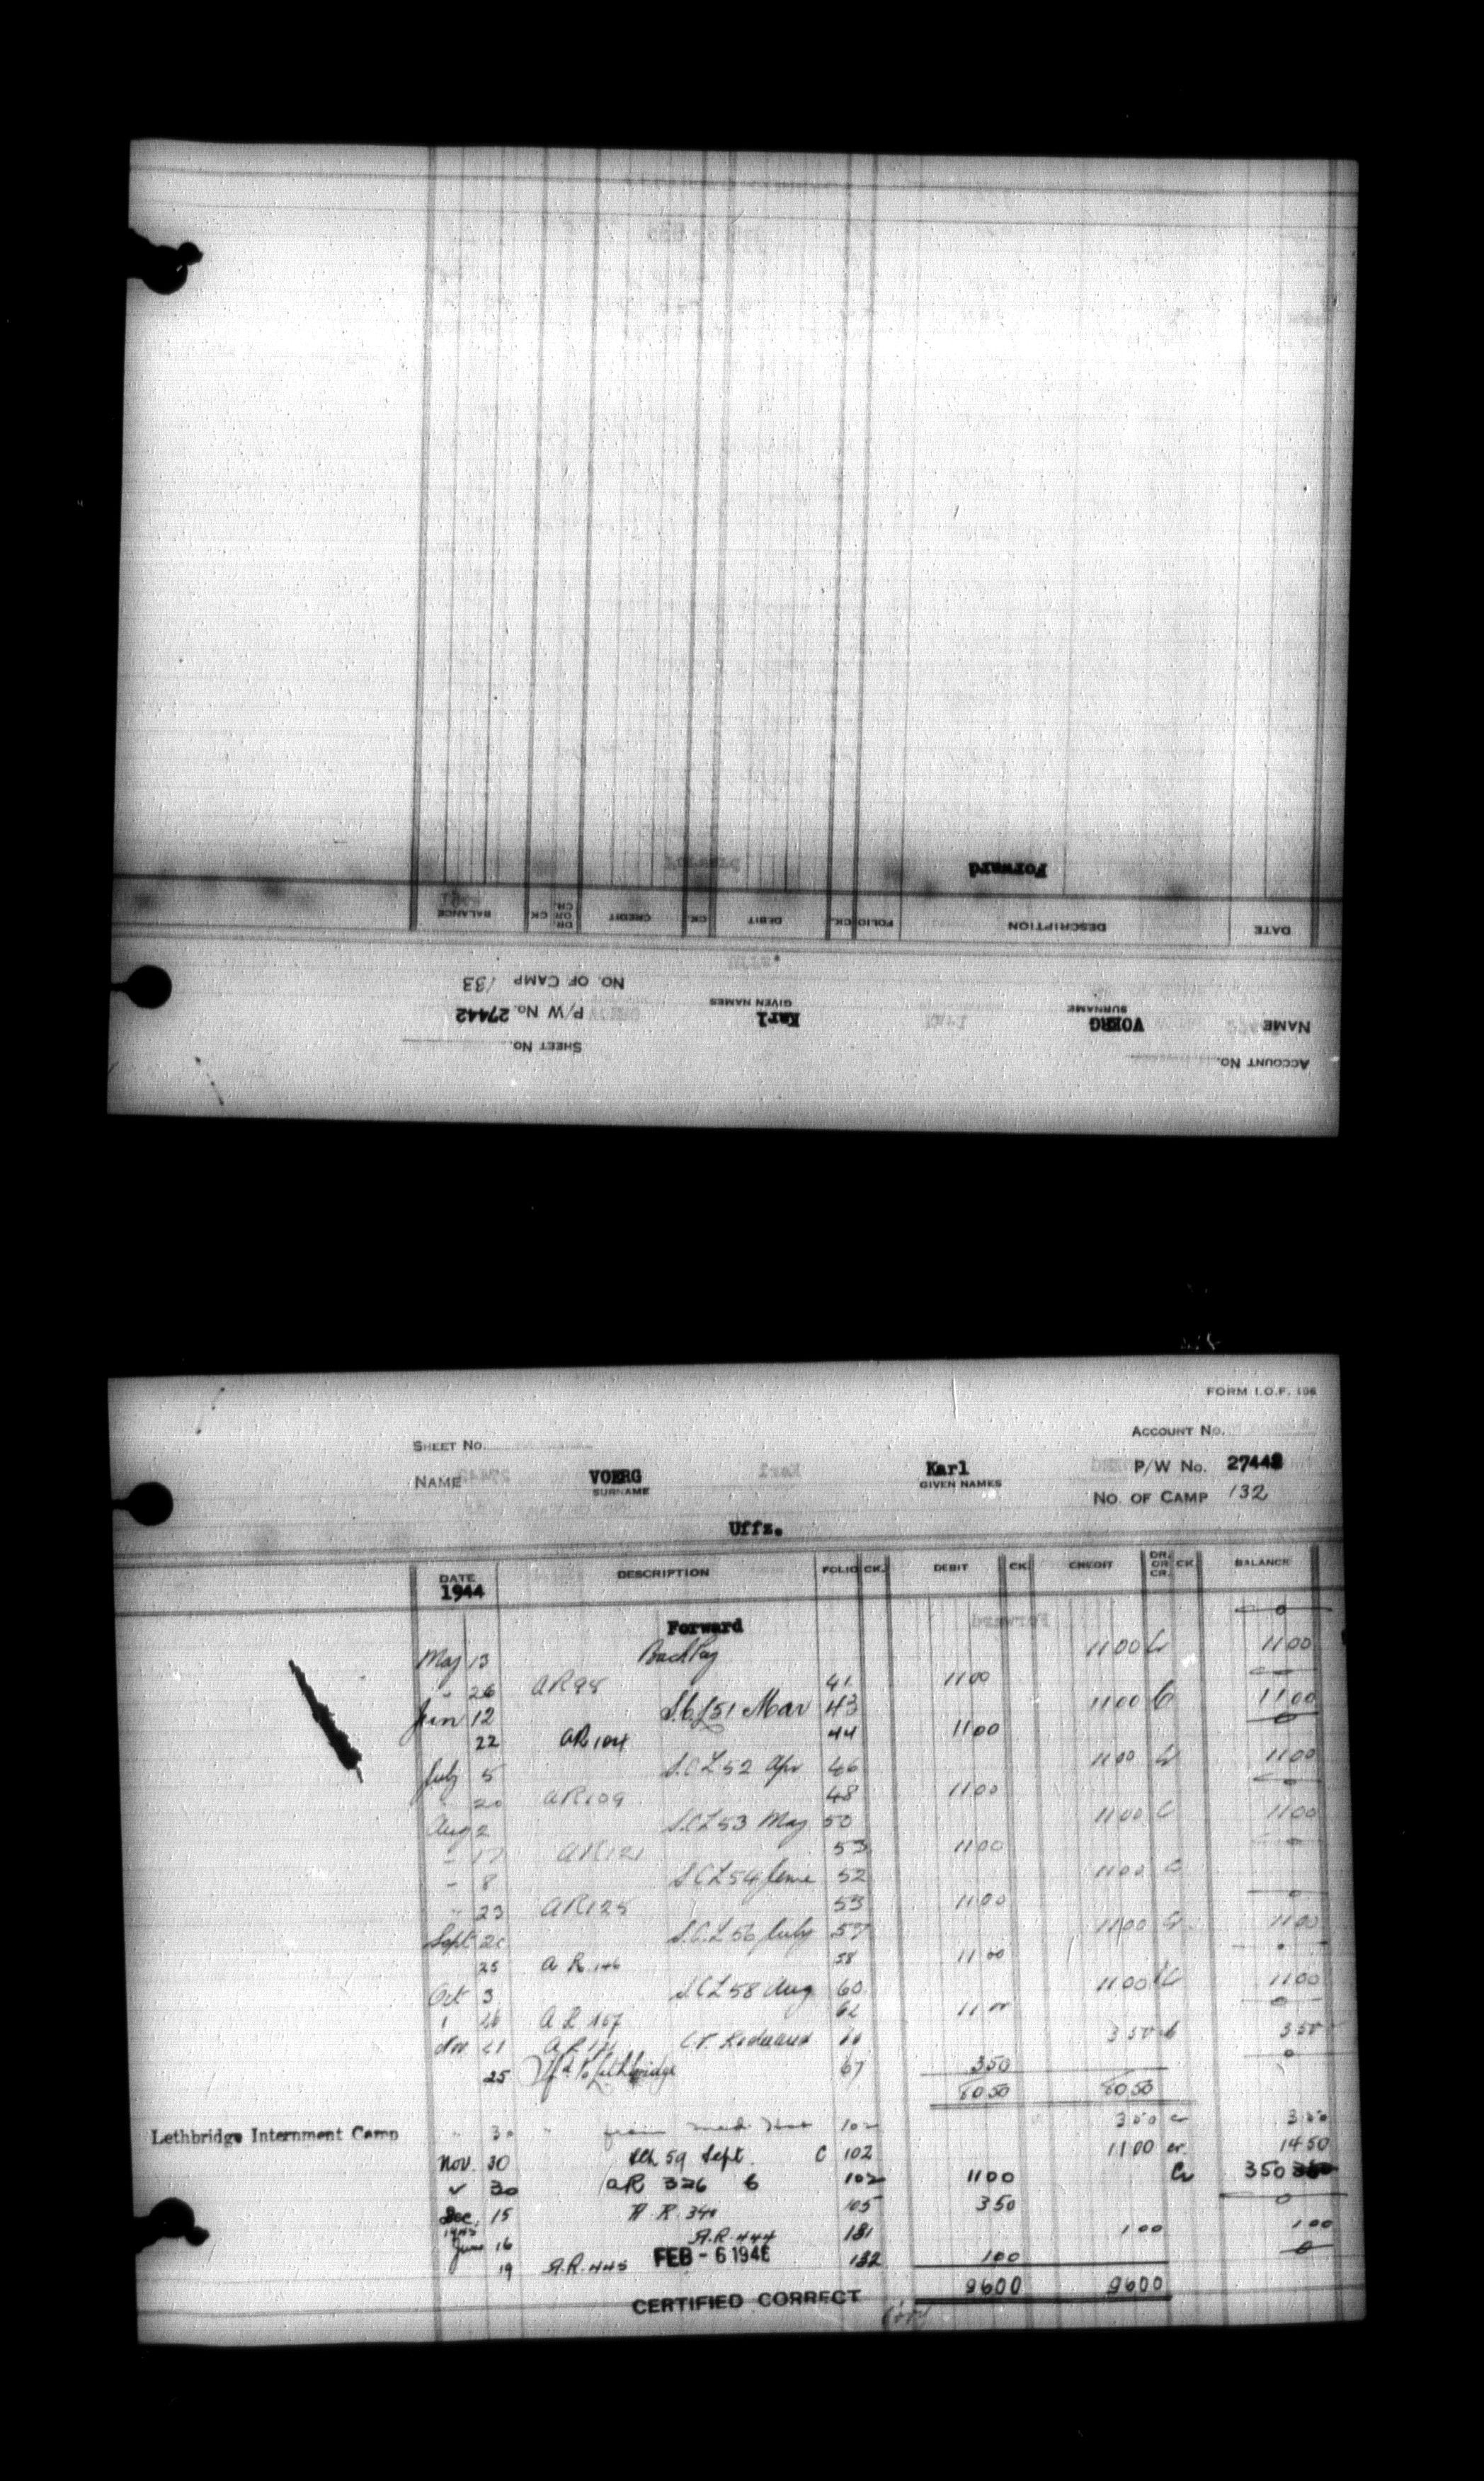 Forward
BALANCE CK DR. OR CR. CREDIT CK. DEBIT CK. FOLIO DESCRIPTION DATE
NO. OF CAMP 133
P/W No. 27442 Karl GIVEN NAMES VOERG SURNAME NAME
SHEET No. ACCOUNT No.
FORM I.O.F. 106
SHEET No. ACCOUNT No.
NAME VOERG Karl P/W No. 27442
SURNAME GIVEN NAMES
NO. OF CAMP 132
Uffz.
DATE DESCRIPTION FOLIO CK. DEBIT CK. CREDIT DR. OR CR. CK. BALANCE
1944
Forward 0
May 13 Back Pay 1100 Cr 1100
" 26 AR98 41 1100
Jun 12 S.C.L 51 Mar 43 1100 Cr 1100
22 AR104 44 1100 0
July 5 S.C.L 52 Apr 46 1100 Cr 1100
20 AR109 48 1100
Aug 2 S.C.L 53 May 50 1100 C 1100
" 17 AR121 53 1100 0
" 8 S.C.L 54 June 52 1100 C
" 23 AR125 53 1100 0
Sept 20 S.C.L 56 July 57 1100 Cr 1100
25 A.R. 146 58 1100
Oct 3 S.C.L 58 Aug 60 1100 Cr 1100
26 A.R. 167 62 1100 0
Nov 21 350 350
25 Tfd to Lethbridge 67 350 0
8050 8050
Lethbridge Internment Camp " 30 " from Med. 102 350 cr 350
Nov. 30 59 Sept. C 102 1100 cr. 1450
" 30 AR 326 102 1100 Cr 350
Dec. 15 A.R. 340 105 350 0
1945
June 16 A.R. 444 131 100 100
19 A.R. 445 FEB - 6 1946 132 100 0
9600 9600
CERTIFIED CORRECT